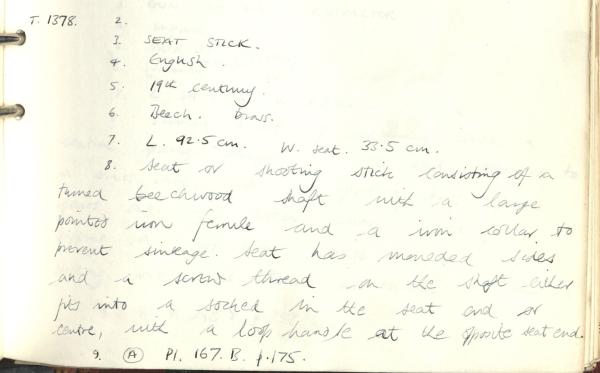 T. 1378. 2.
3. SEAT STICK.
4. English.
5. 19th century.
6. Beech. Brass.
7. L. 92.5 cm. W. seat. 33.5 cm.
8. Seat or shooting stick consisting of a
turned beechwood shaft with a large
pointed iron ferrule and a iron collar to
prevent sinkage. Seat has sides
and a screw thread on the shaft either
fits into a socked in the seat end or
centre, with a loop handle at the opposite seat end.
9. (A) Pl. 167. B. p.175.